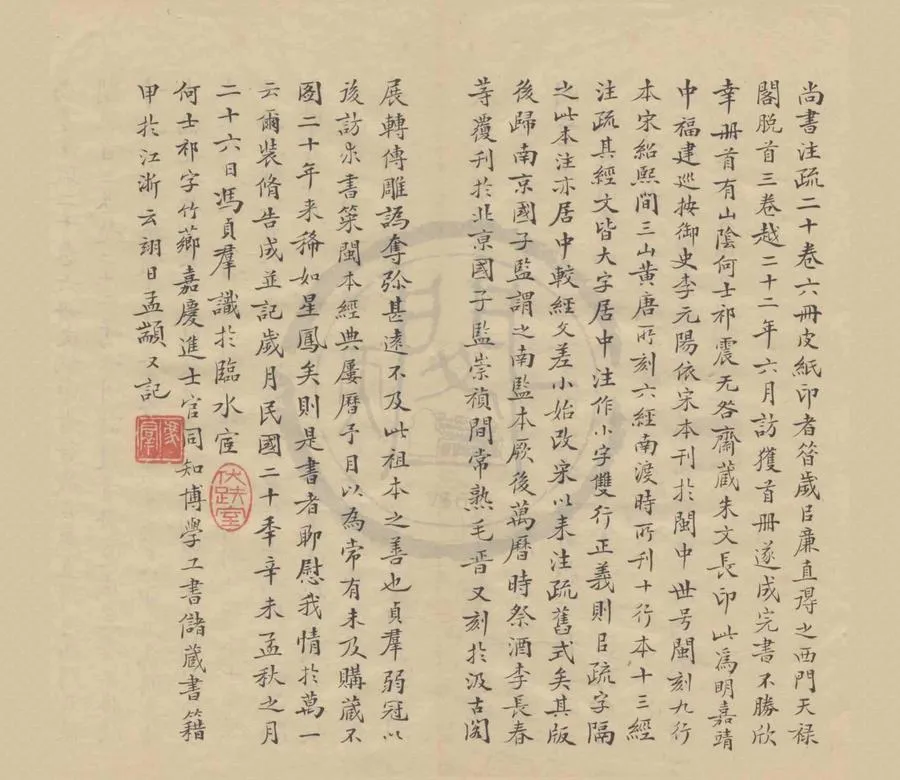 尚書注疏二十卷六冊皮紙印者昝歲㠯廉直得之西門天禄
閣脱首三卷越二十二年六月訪獲首冊遂成完書不勝欣
幸冊首有山陰何士祁震无咎齋藏朱文長印此為明嘉靖
中福建巡按御史李元陽依宋本刊於閩中世号閩刻九行
本宋紹熙間三山黄唐所刻六經南渡時所刊十行本十三經
注疏其經文皆大字居中注作小字雙行正義則㠯疏字隔
之此本注亦居中較經文差小始改宋以来注疏舊式矣其版
後歸南京國子監謂之南監本厥後萬曆時祭酒李長春
等覆刊於北京國子監崇禎間常熟毛晋又刻於汲古閣
展轉傳雕譌奪弥甚遠不及此祖本之善也貞羣弱冠以
後訪求書棨閩本經典屢曆予目以為常有未及購藏不
图二十年来稀如星鳳矣則是書者聊慰我情於萬一
云爾装脩告成並記歲月民國二十季辛未孟秋之月
二十六日馮貞羣識於臨水宧
伏跗室
何士祁字竹薌嘉慶進士官同知博學工書儲藏書籍
甲於江浙云翊日孟顓又記
馮羣